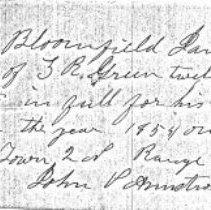 Bloomfield Jan
of G. R. Green twel
in full for his
the year 1854 on
Town 2 N Range
John P Armstro